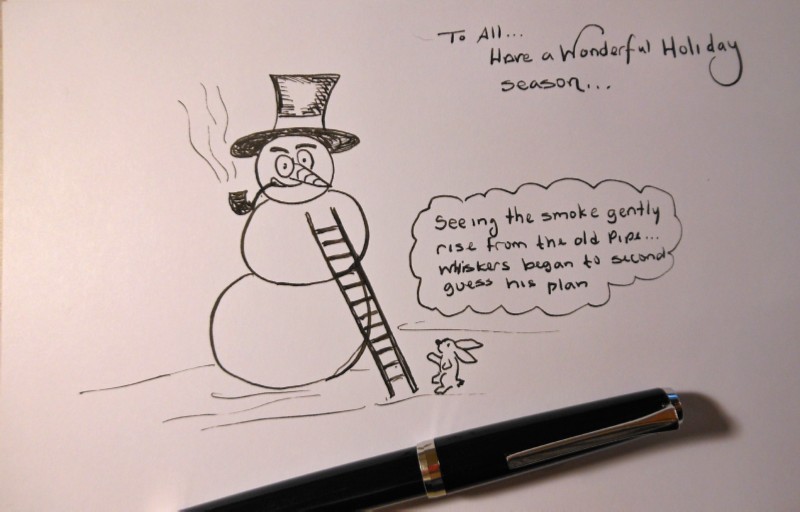 To All...
Have a Wonderful Holiday
season...
Seeing the smoke gently
rise from the old Pipe...
whiskers began to second
guess his plan